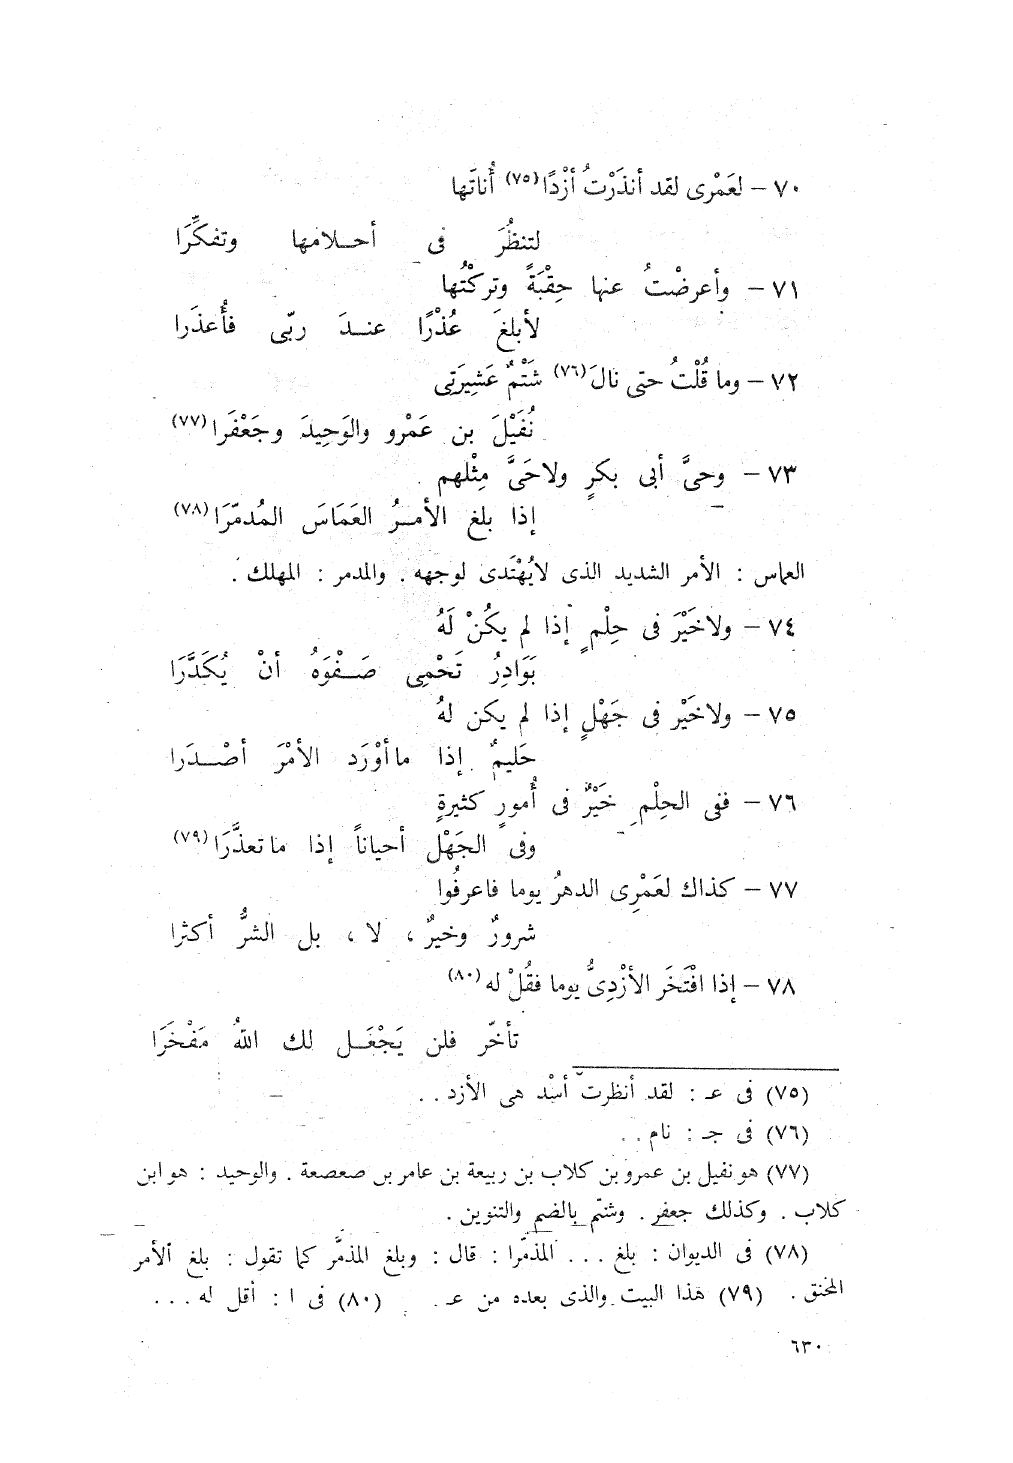 ٧٠ – لعَمْرى لقد أنذَرْتُ أزْدًا(٧٥) أُناتَها
لتنظُرَ فى أحـلامها وتفكِّرَا
٧١ – وأعرضْتُ عنها حِقْبَةً وتركْتُها
لأبلغَ عُذْرًا عنـدَ ربّى فأُعذَرا
٧٢ – وما قُلْتُ حتى نالَ(٧٦) شَتْمٌ عَشِيرَتِى
نُفَيْلَ بن عَمْرو والوَحِيدَ وجَعْفَرا(٧٧)
٧٣ – وحىَّ أبى بكرٍ ولاحَىَّ مِثْلهم
إذا بلغ الأمـرُ العَمَاسَ المُدمّرَا(٧٨)
العماس : الأمر الشديد الذى لايُهْتَدى لوجهه . والمدمر : المهلك .
٧٤ – ولاخَيْرَ فى حِلْمٍ إذا لم يكُنْ لَهُ
بَوَادِرُ تَحْمِى صَـفْوَهُ أنْ يُكَدَّرَا
٧٥ – ولاخَيْر فى جَهْلٍ إذا لم يكن لهُ
حَليمٌ إذا ماأوْرَد الأمْرَ أصْـدَرا
٧٦ – ففى الحِلْمِ خَيْرٌ فى أُمورٍ كثيرةٍ
وفى الجَهْل أحياناً إذا ماتعذَّرَا(٧٩)
٧٧ – كذاك لعَمْرِى الدهرُ يوما فاعرفُوا
شرورٌ وخيرٌ ، لا ، بل الشرُّ أكثرا
٧٨ – إذا افْتَخَر الأزْدِىُّ يوما فقُلْ له(٨٠)
تأخّر فلن يَجْعَـل لك اللهُ مَفْخَرَا
(٧٥) فى عـ : لقد أنظرت أسْد هى الأزد . .
(٧٦) فى جـ : نام . .
(٧٧) هو نفيل بن عمرو بن كلاب بن ربيعة بن عامر بن صعصعة . والوحيد : هو ابن
كلاب . وكذلك جعفر . وشتم بالضم والتنوين .
(٧٨) فى الديوان : بلغ . . . المذمّرا : قال : وبلغ المذمَّر كما تقول : بلغ الأمر
المخنق . (٧٩) هذا البيت والذى بعده من عـ . (٨٠) فى ا : أقل له . . .
٦٣٠